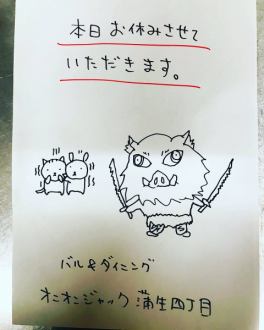 本日お休みさせて
いただきます。
バル&ダイニング
オニオンジャック蒲生四丁目